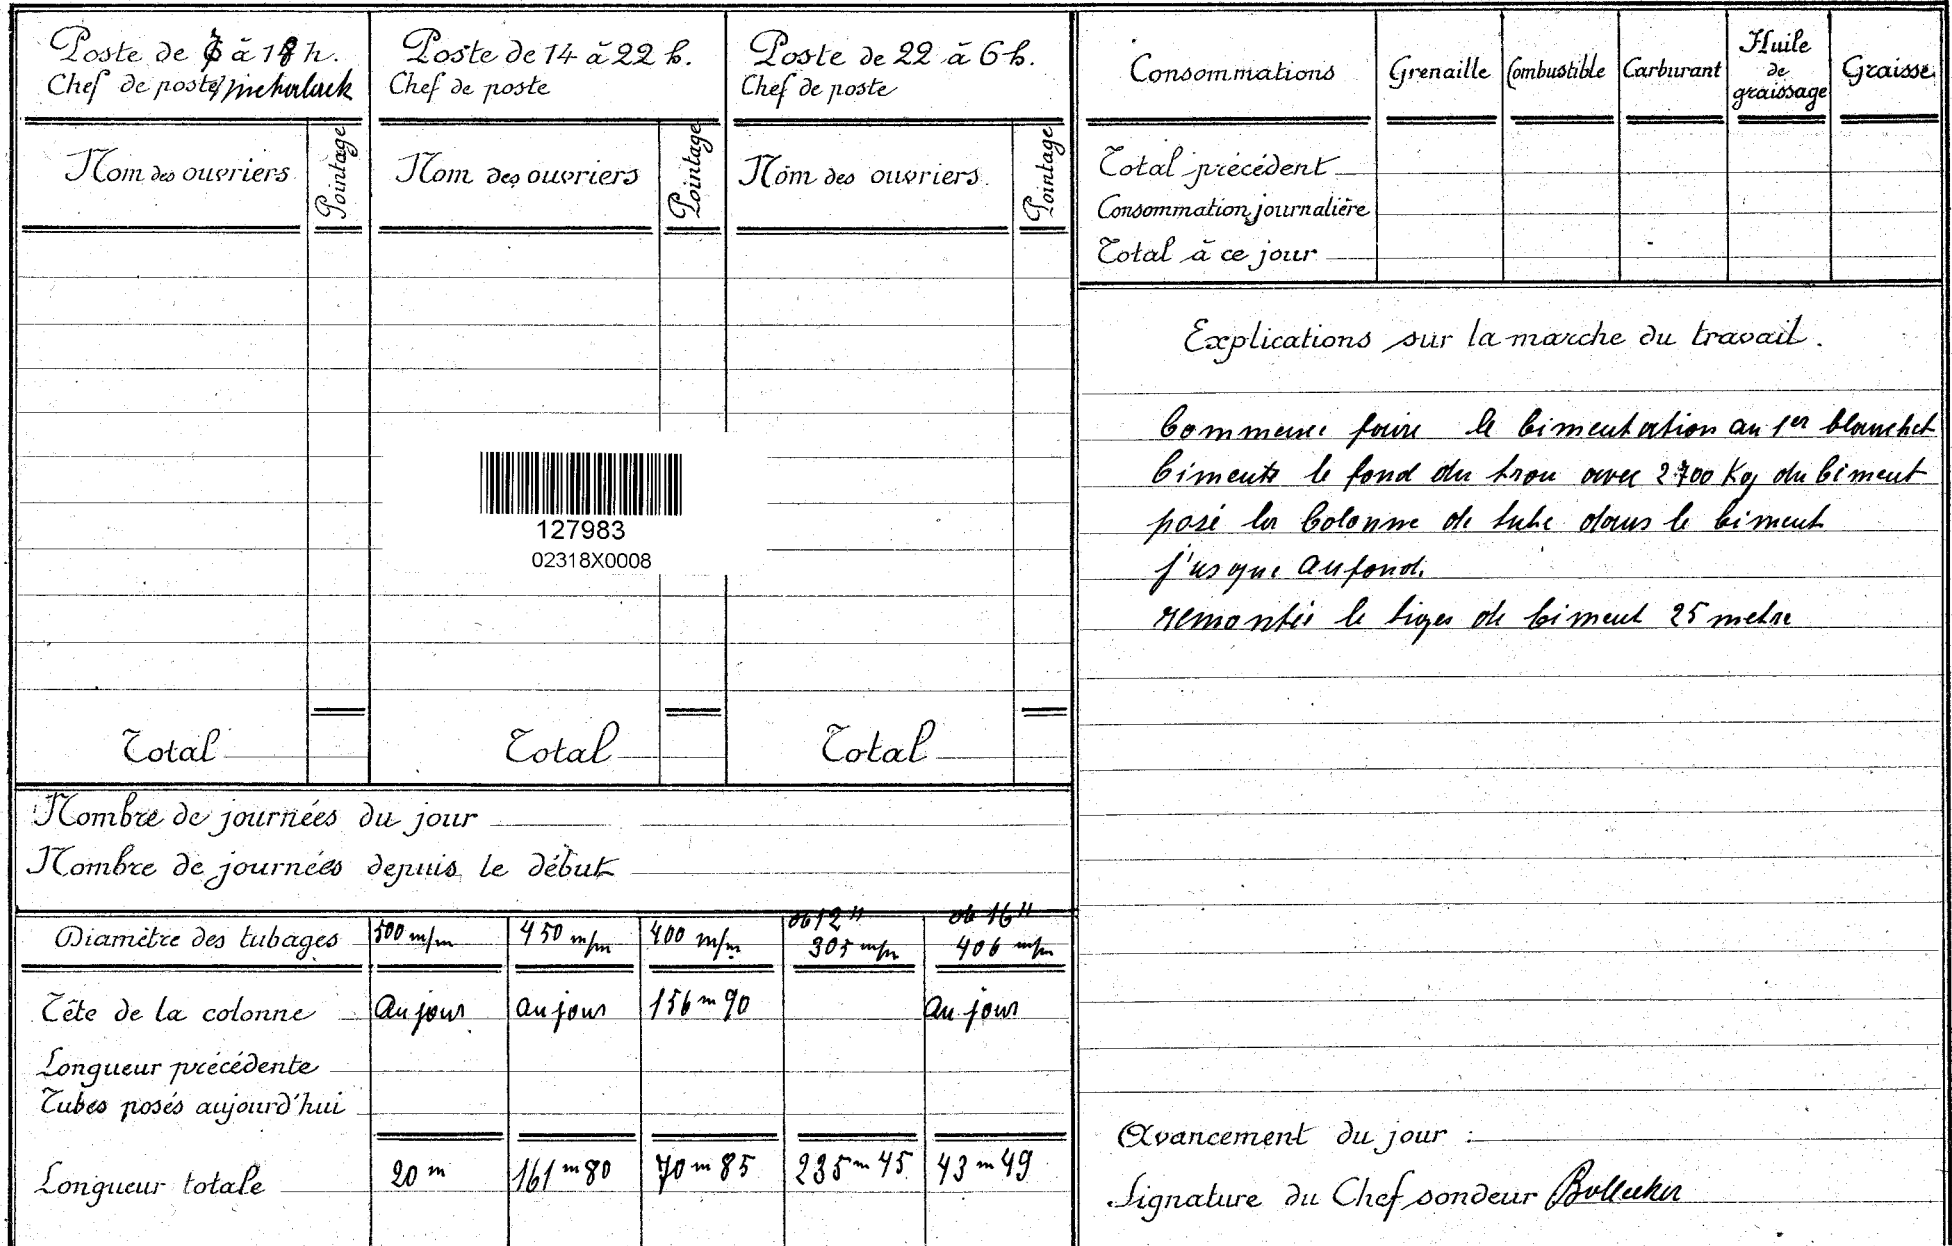 Poste de 7 à 18 h.
Chef de poste
Nom des ouvriers
Pointage
Total
Poste de 14 à 22 h.
Chef de poste
Nom des ouvriers
Pointage
127983
02318X0008
Total
Poste de 22 à 6 h.
Chef de poste
Nom des ouvriers
Pointage
Total
Nombre de journées du jour
Nombre de journées depuis le début
Diamètre des tubages 500 m/m 450 m/m 400 m/m ob 12" 305 m/m ob 16" 406 m/m
Tête de la colonne au jour au jour 156 m 90 au jour
Longueur précédente
Tubes posés aujourd'hui
Longueur totale 20 m 161 m 80 70 m 85 235 m 45 43 m 49
Consommations Grenaille Combustible Carburant Huile de graissage Graisse
Total précédent
Consommation journalière
Total à ce jour
Explications sur la marche du travail.
Commence faire le Cimentation au 1er blanchet
Cimente le fond du trou avec 2700 Kg du Ciment
posé la Colonne de tube dans le Ciment
j'usque au fond.
remontée le tiges de Ciment 25 metre
Avancement du jour :
Signature du Chef sondeur